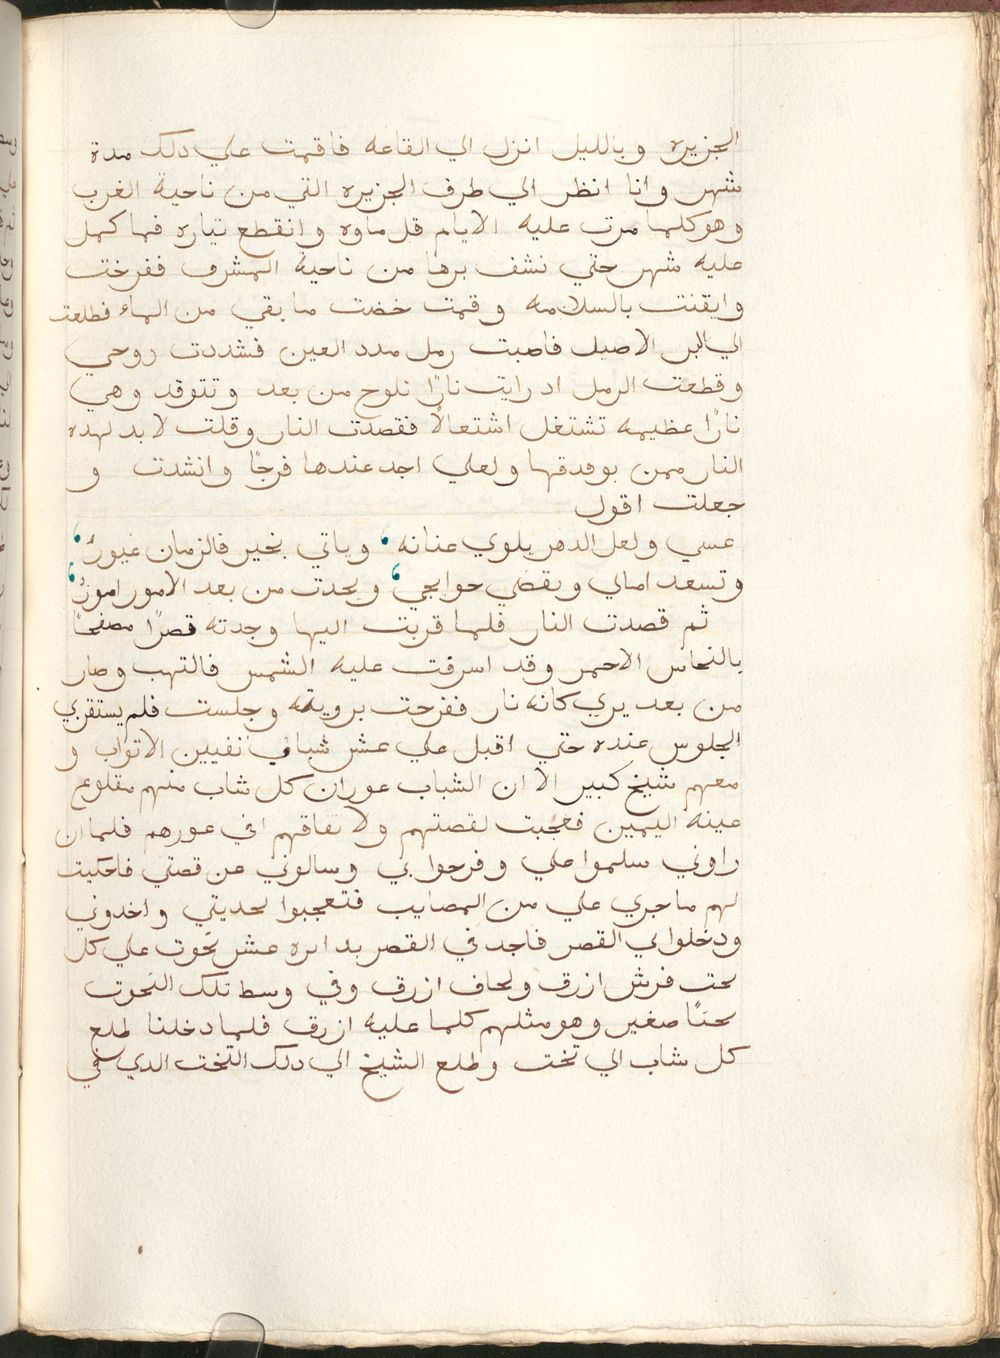 الجزيره وبالليل انزل الي القاعه فاقمت علي دلك مدة
شهر وانا انظر الي طرف الجزيره التي من ناحية الغرب
وهو كلما مرت عليه الايام قل ماوه وانقطع تياره فما كمل
عليه شهر حتي نشف برها من ناحية المشرق ففرحت
وايقنت بالسلامه وقمت خضت ما بقي من الماء فطلعت
الي البر الاصيل فاصبت رمل مدد العين فشددت روحي
وقطعت الرمل اد رايت نارًا تلوح من بعد وتتوقد وهي
نارًا عظيمه تشتغل اشتعالًا فقصدت النار وقلت لا بد لهده
النار ممن يوقدها ولعلي اجد عندها فرجًا وانشدت و
جعلت اقول
عسي ولعل الدهر يلوي عنانه، وياتي بخير فالزمان غيورٌ،
وتسعد امالي وتقضي حوايجي، ويحدت من بعد الامور امورٌ،
ثم قصدت النار فلما قربت اليها وجدته قصرًا مصفحًا
بالنحاس الاحمر وقد اسرقت عليه الشمس فالتهب وصار
من بعد يري كانه نار ففرحت برويته وجلست فلم يستقر بي
الجلوس عنده حتي اقبل علي عشر شباب نفيين الاتواب و
معهم شيخ كبير الا ان الشباب عوران كل شاب منهم مقلوع
عينه اليمين فعجبت لقصتهم ولاتفاقهم في عورهم فلما ان
راوني سلموا علي وفرحوا بي وسالوني عن قصتي فاحكيت
لهم ما جري علي من المصايب فتعجبوا لحديتي واخدوني
ودخلوا لي القصر فاجد في القصر بدايره عشر تخوت علي كل
تخت فرش ازرق ولحاف ازرق وفي وسط تلك التخوت
تختًا صغير وهو مثلهم كلما عليه ازرق فلما دخلنا طلع
كل شاب الي تخت وطلع الشيخ الي دلك التخت الدي في